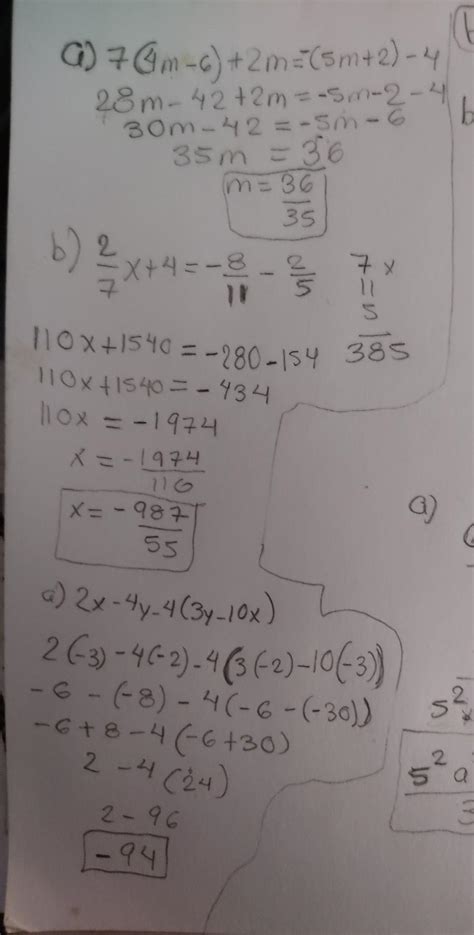 a) 7(4m-6)+2m=-(5m+2)-4
28m-42+2m=-5m-2-4
30m-42=-5m-6
35m = 36
m=36/35
b) 2/7 x+4=-8/11-2/5
7 x
11
5
385
110x+1540=-280-154
110x+1540=-434
110x = -1974
x = -1974/110
x=-987/55
a) 2x-4y-4(3y-10x)
2(-3)-4(-2)-4(3(-2)-10(-3))
-6-(-8)-4(-6-(-30))
-6+8-4(-6+30)
2-4(24)
2-96
-94
b
a)
5²
5²a
3